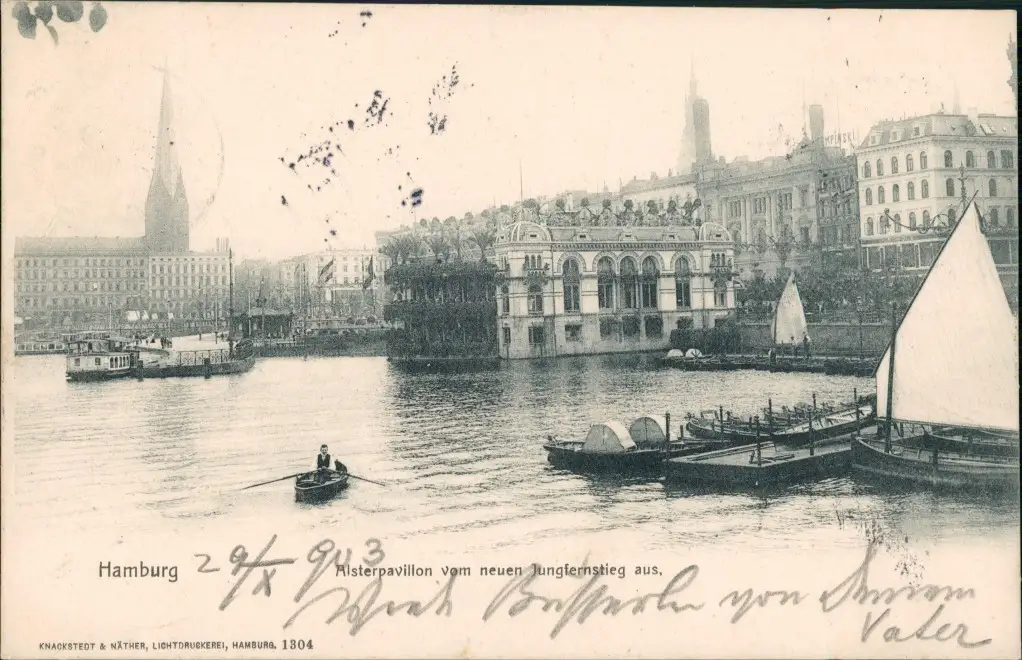 Hamburg Alsterpavillon vom neuen Jungfernstieg aus.
29/X 903
Busserln von Deinem
Vater
KNACKSTEDT & NÄTHER, LICHTDRUCKEREI, HAMBURG. 1304